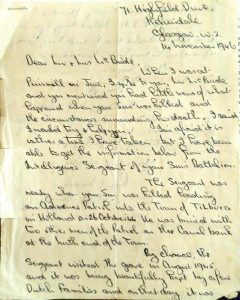 71 Highfield Drive,
Kelvindale
Glasgow. W.2.
14 November 1946
Dear Mr & Mrs McBride.
When I was at
in June, I spoke to you, Mr McBride
and you mentioned you had little news of what
happened when your Son was killed and
the circumstances surrounding his death. I said
I would try & help you. I'm afraid it is
rather a time I have taken, but I have been
able to get the information below from the
Intelligence Sergeant of your Son's Battalion.
The Sergeant was
nearby when your Son was killed leading
an Patrol into the Town of
in Holland on 26 October 44. He was buried with
two other men of the Patrol on the Canal bank
at the North end of the Town.
By chance the
Sergeant visited the grave in August 1945
and it was being beautifully kept by
Dutch Families and on that day it was